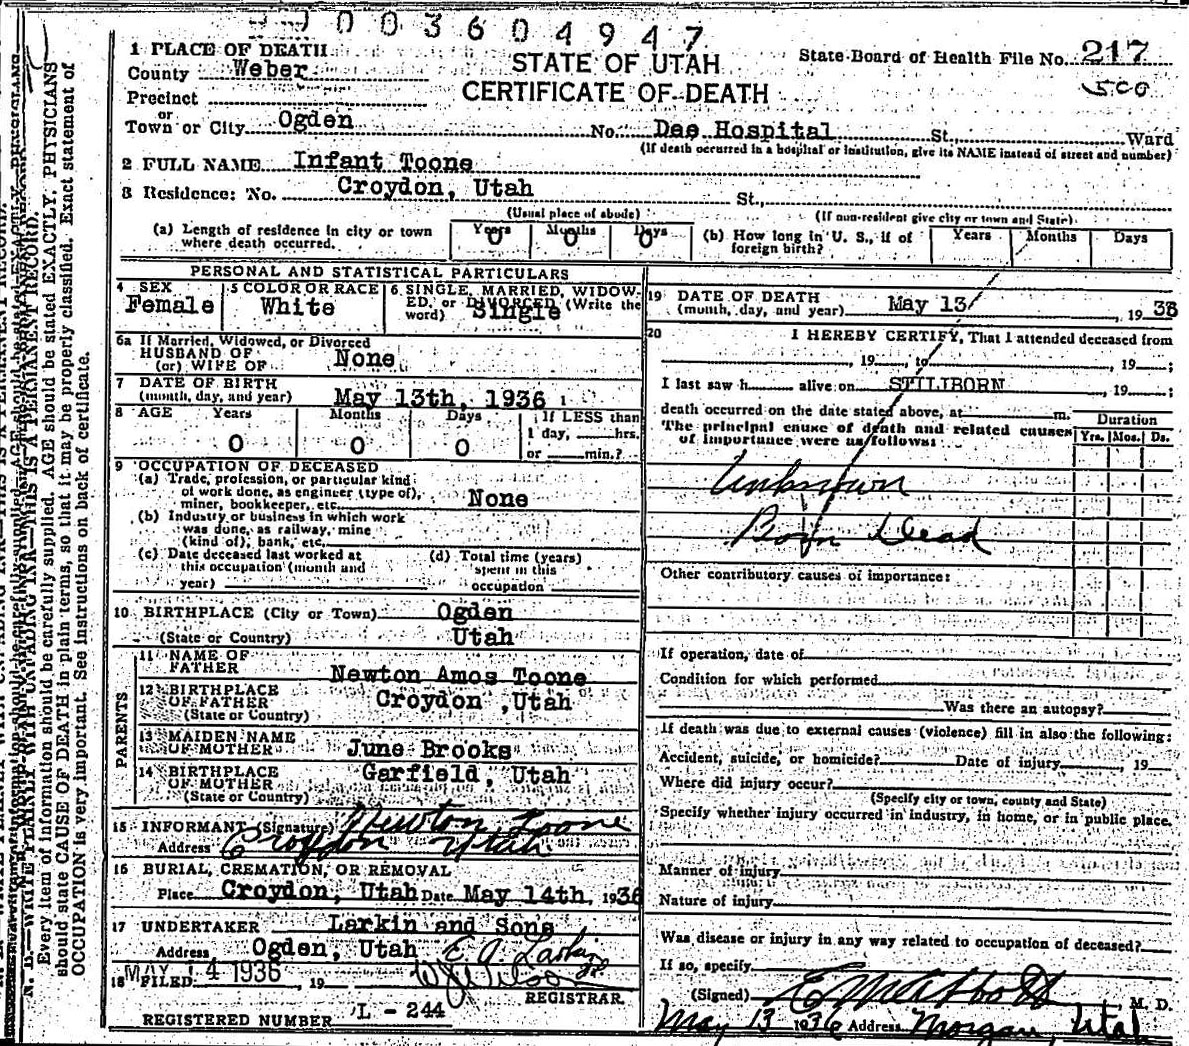 003604947
1 PLACE OF DEATH
STATE OF UTAH
CERTIFICATE OF DEATH
State Board of Health File No. 217
500
County Weber
Precinct
or
Town or City Ogden No. Dee Hospital St., Ward
(If death occurred in a hospital or institution, give its NAME instead of street and number)
2 FULL NAME Infant Toone
3 Residence: No. Croydon, Utah St.,
(Usual place of abode) (If non-resident give city or town and State)
(a) Length of residence in city or town where death occurred. Years 0 Months 0 Days 0
(b) How long in U. S., if of foreign birth? Years Months Days
PERSONAL AND STATISTICAL PARTICULARS
4 SEX
Female
5 COLOR OR RACE
White
6 SINGLE, MARRIED, WIDOWED, or DIVORCED (Write the word) Single
6a If Married, Widowed, or Divorced
HUSBAND OF
(or) WIFE OF None
7 DATE OF BIRTH
(month, day, and year) May 13th, 1936
8 AGE Years Months Days If LESS than
0 0 0 1 day, hrs.
or min.?
9 OCCUPATION OF DECEASED
(a) Trade, profession, or particular kind
of work done, as engineer (type of),
miner, bookkeeper, etc. None
(b) Industry or business in which work
was done, as railway, mine
(kind of), bank, etc.
(c) Date deceased last worked at
this occupation (month and
year)
(d) Total time (years)
spent in this
occupation
10 BIRTHPLACE (City or Town) Ogden
(State or Country) Utah
PARENTS
11 NAME OF
FATHER Newton Amos Toone
12 BIRTHPLACE
OF FATHER Croydon ,Utah
(State or Country)
13 MAIDEN NAME
OF MOTHER June Brooks
14 BIRTHPLACE Garfield, Utah
OF MOTHER
(State or Country)
15 INFORMANT (Signature) Newton Toone
Address Croydon Utah
16 BURIAL, CREMATION, OR REMOVAL
Place Croydon, Utah Date May 14th, 1936
17 UNDERTAKER Larkin and Sons
Address Ogden, Utah
MAY 14 1936
18 FILED , 19
REGISTRAR
REGISTERED NUMBER L - 244
19 DATE OF DEATH
(month, day, and year) May 13 , 19 36
20 I HEREBY CERTIFY, That I attended deceased from
, 19 , to , 19 ;
I last saw h alive on STILLBORN , 19 ;
death occurred on the date stated above, at m.
The principal cause of death and related causes
of importance were as follows:
Duration
Yrs. Mos. Ds.
Unknown
Born Dead
Other contributory causes of importance:
If operation, date of
Condition for which performed
Was there an autopsy?
If death was due to external causes (violence) fill in also the following:
Accident, suicide, or homicide? Date of injury , 19
Where did injury occur?
(Specify city or town, county and State)
Specify whether injury occurred in industry, in home, or in public place.
Manner of injury
Nature of injury
Was disease or injury in any way related to occupation of deceased?
If so, specify
(Signed) M. D.
May 13 1936 Address Morgan, Utah
Every item of information should be carefully supplied. AGE should be stated EXACTLY. PHYSICIANS
should state CAUSE OF DEATH in plain terms, so that it may be properly classified. Exact statement of
OCCUPATION is very important. See instructions on back of certificate.